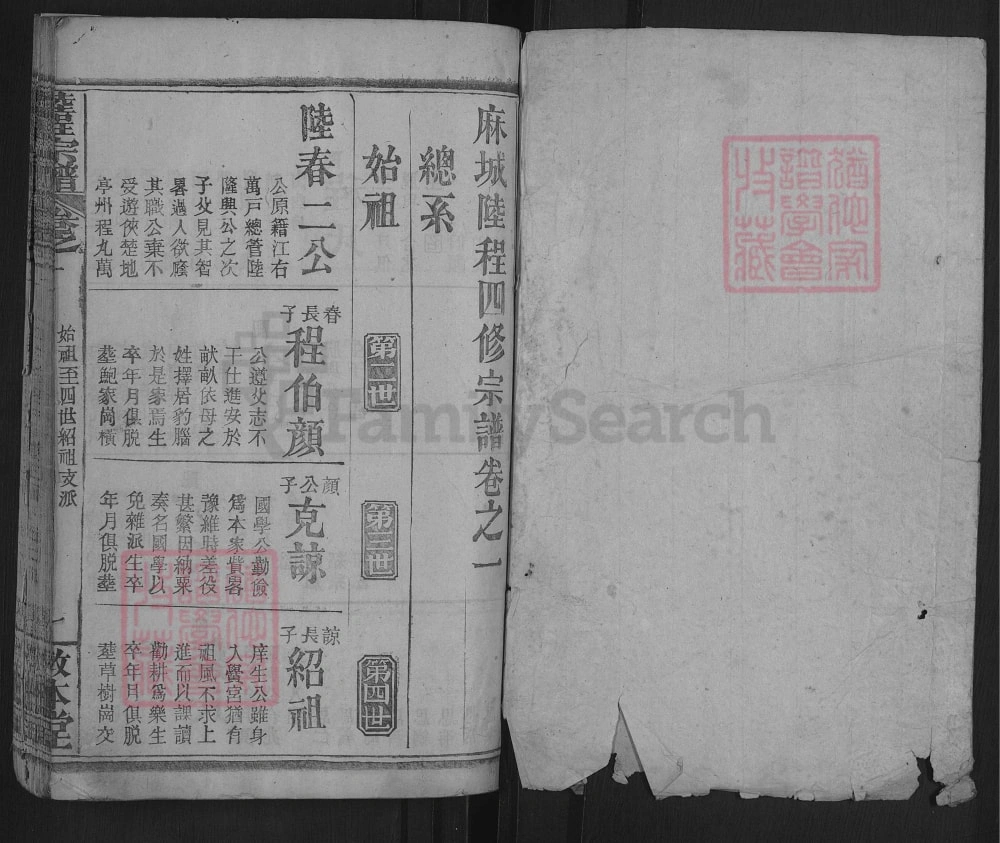 猶他家
譜學會
特藏
麻城陸程四修宗譜卷之一
總系
始祖
第二世
第三世
第四世
陸春二公
公原籍江右
萬戶總管陸
隆興公之次
子父見其智
畧過人欲廕
其職公棄不
受遊俠楚地
亭州程九萬
春長子
程伯顏
公遵父志不
干仕進安於
畎畝依母之
姓擇居豹腦
於是家焉生
卒年月俱脫
塟鮑家崗橫
顏公子
克諒
國學公勤儉
爲本家貲畧
豫維時差役
甚繁因納粟
奏名國學以
免雜派生卒
年月俱脫塟
諒長子
紹祖
庠生公雖身
入黌宮猶有
祖風不求上
進而以課讀
勸耕爲樂生
卒年月俱脫
塟草樹崗父
宗譜
卷之一
始祖至四世紹祖支派
一
敦本堂
FamilySearch